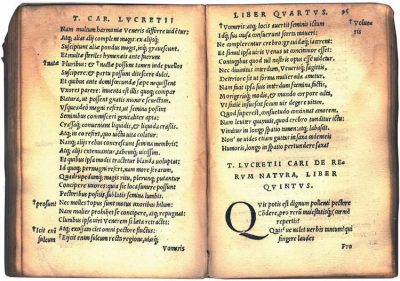 T. CAR. LVCRETII
Nam multum harmoniæ Veneris differre uidẽtur:
Atq; alias alij complent magis ex alijsq;
Suscipiunt aliæ pondus magis, inq; grauescunt.
Et multæ steriles hymenæis ante fuerunt
Pluribus: & nactæ possunt tamen inde puellos
Suscipere, & partu possunt ditescere dulci.
Et quibus ante domi fœcundæ sæpe nequissent
Vxores parere: inuenta est illis quoq; compar
Natura, ut possent gnatis munire senectam.
Vsqueadeo magni refert, ut semina possint
Seminibus commisceri genitaliter apta:
Crassaq; conueniant liquidis, & liquida crassis.
Atq; in eo refert, quo uictu uita colatur.
Namq; alijs rebus concrescunt semina membris,
Atq; alijs extenuantur, tabentq; uicissim.
Et quibus ipsa modis tractetur blanda uoluptas:
Id quoq; permagni refert, nam more ferarum,
Quadrupedumq; magis ritu, plerunq; putantur
Concipere uxores: quia sic loca sumere possunt
Pectoribus positis, sublatis semina lumbis.
Nec molles opus sunt motus uxoribus hilum:
Nam mulier prohibet se concipere, atq; repugnat:
Clunibus ipsa uiri Venerem si læta retractet:
Atq; exossato ciet omni pectore fluctus:
†Eijcit enim sulcum recta regione, uiamq;
Veneris
LIBER QVARTVS. 95
†Vomeris: atq; locis auertit seminis ictum
Idq; sua causa consuerunt scorta moueri:
Ne complerentur crebro grauidæq; iacerent:
Et simul ipsa uiris Venus ut concinnior esset:
Coniugibus quod nil nostris opus esse uidetur.
Nec diuinitus interdum, Venerisq; sagittis,
Deteriore fit ut forma muliercula ametur.
Nam facit ipsa suis interdum fœmina factis,
Morigerisq; modis, & mundo corpore culta,
Vt facile insuescat secum uir degere uitam.
Quod superest, consuetudo concinnat amorem.
Nam leuiter quamuis, quod crebro tunditur ictu,
Vincitur in longo spatio tamen: atq; labascit.
Non ne uides etiam guttas in saxa cadenteis
Humoris, longo in spatio pertundere saxa?
T. LVCRETII CARI DE RE-
RVM NATVRA, LIBER
QVINTVS.
QVis potis est dignum pollenti pectore
Cõdere, pro rerũ maiestatisq; carmẽ
repertis?
Quis'ue ualet uerbis tantum: qui
fingere laudes
Pro